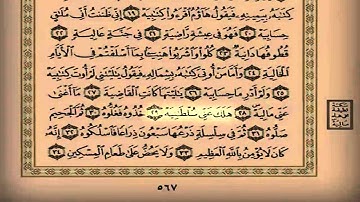 كِتَٰبَهُۥ بِيَمِينِهِۦ فَيَقُولُ هَآؤُمُ ٱقْرَءُوا۟ كِتَٰبِيَهْ ١٩ إِنِّى ظَنَنتُ أَنِّى مُلَٰقٍ
حِسَابِيَهْ ٢٠ فَهُوَ فِى عِيشَةٍ رَّاضِيَةٍ ٢١ فِى جَنَّةٍ عَالِيَةٍ ٢٢
قُطُوفُهَا دَانِيَةٌ ٢٣ كُلُوا۟ وَٱشْرَبُوا۟ هَنِيٓـًٔۢا بِمَآ أَسْلَفْتُمْ فِى ٱلْأَيَّامِ
ٱلْخَالِيَةِ ٢٤ وَأَمَّا مَنْ أُوتِىَ كِتَٰبَهُۥ بِشِمَالِهِۦ فَيَقُولُ يَٰلَيْتَنِى لَمْ أُوتَ كِتَٰبِيَهْ
٢٥ وَلَمْ أَدْرِ مَا حِسَابِيَهْ ٢٦ يَٰلَيْتَهَا كَانَتِ ٱلْقَاضِيَةَ ٢٧ مَآ أَغْنَىٰ
عَنِّى مَالِيَهْ ٢٨ هَلَكَ عَنِّى سُلْطَٰنِيَهْ ٢٩ خُذُوهُ فَغُلُّوهُ ٣٠ ثُمَّ ٱلْجَحِيمَ
صَلُّوهُ ٣١ ثُمَّ فِى سِلْسِلَةٍ ذَرْعُهَا سَبْعُونَ ذِرَاعًا فَٱسْلُكُوهُ ٣٢ إِنَّهُۥ
كَانَ لَا يُؤْمِنُ بِٱللَّهِ ٱلْعَظِيمِ ٣٣ وَلَا يَحُضُّ عَلَىٰ طَعَامِ ٱلْمِسْكِينِ ٣٤
٥٦٧